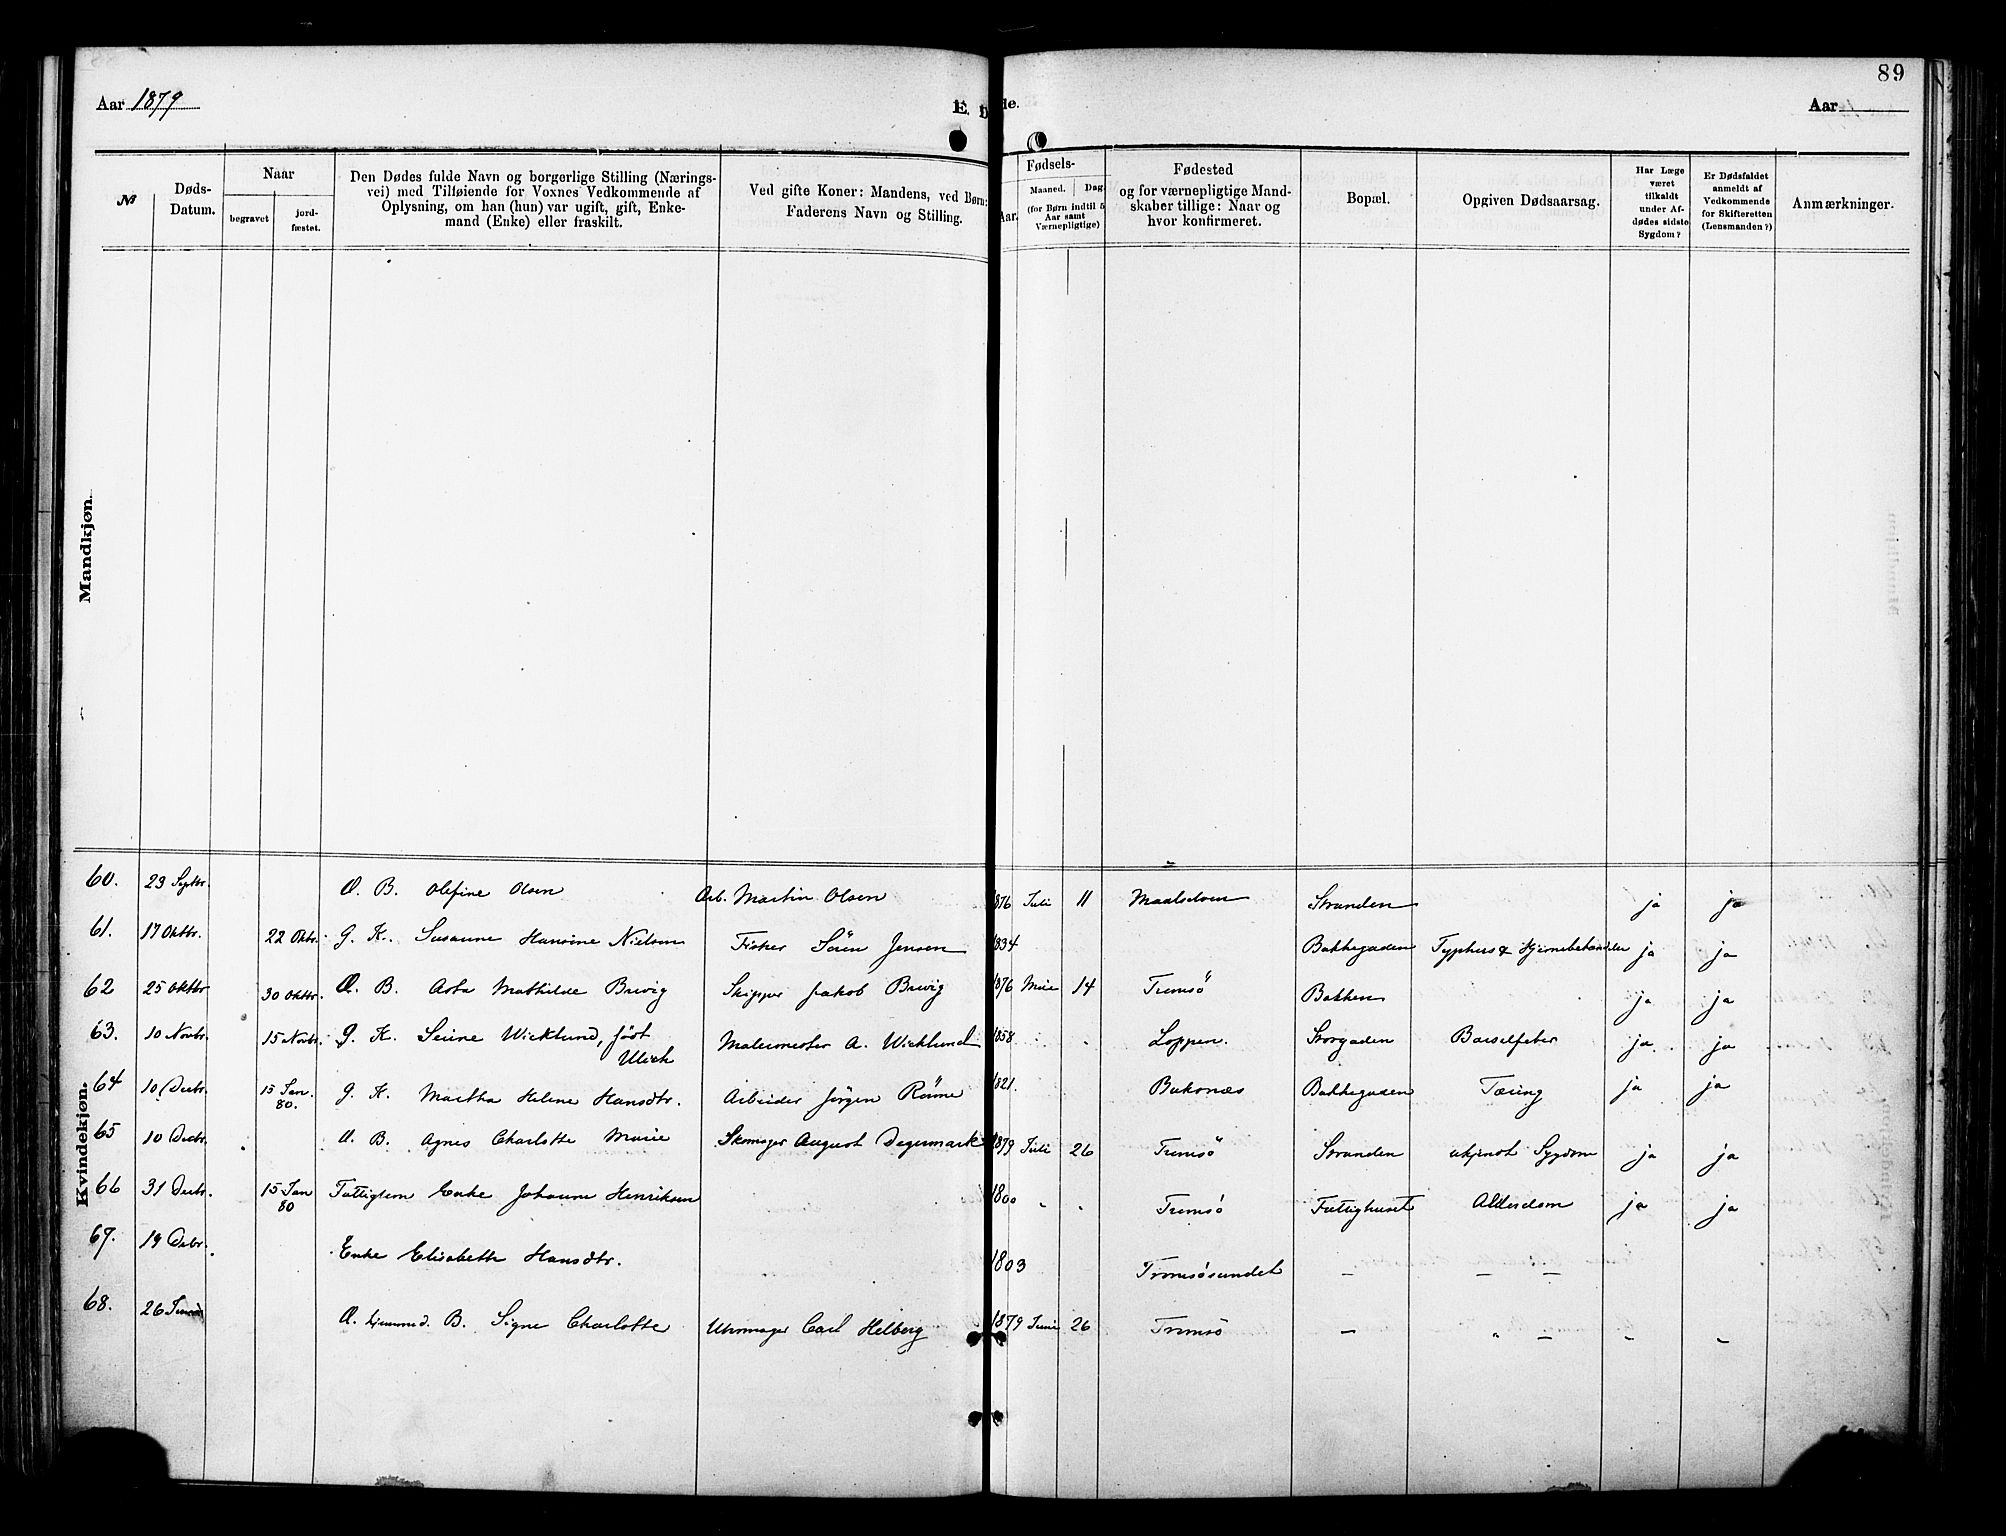 89
Aar 1879
E. b
de.
Aar
№
Døds-
Datum.
Naar
begravet
jord-
fæstet.
Den Dødes fulde Navn og borgerlige Stilling (Nærings-
vei) med Tilføiende for Voxnes Vedkommende af
Oplysning, om han (hun) var ugift, gift, Enke-
mand (Enke) eller fraskilt.
Ved gifte Koner: Mandens, ved Børn:
Faderens Navn og Stilling.
Fødsels-
Aar.
Maaned.
Dag.
(for Børn indtil 5
Aar samt
Værnepligtige)
Fødested
og for værnepligtige Mand-
skaber tillige: Naar og
hvor konfirmeret.
Bopæl.
Opgiven Dødsaarsag.
Har Læge
været
tilkaldt
under Af-
dødes sidste
Sygdom?
Er Dødsfaldet
anmeldt af
Vedkommende
for Skifteretten
(Lensmanden?)
Anmærkninger.
Mandkjøn.
Kvindekjøn.
60. 23 Septbr. Æ. B. Olefine Olsen Arb. Martin Olsen 1876 Juli 11 Maalselven Stranden ja ja
61. 17 Oktbr. 22 Oktbr. G. K. Susanne Hansine Nielsen Fisker Sören Jensen 1834 Bakkegaden Typhus & ja ja
62 25 Oktbr 30 Oktbr. Æ. B. Asta Mathilde Brevig Skipper Jakob Brevig 1876 14 Tromsö Bakken ja ja
63. 10 Novbr. 15 Novbr. G. K. Wicklund, födt Malermester A. Wicklund 1858 Loppen. Storgaden Barselfeber ja ja
Ulich
64 10 Decbr. 15 Jan. G. K. Martha Helene Hansdtr. Arbeider Jörgen 1821. Bakkegaden Tæring ja ja
80.
65 10 Decbr. Æ. B. Agnes Charlotte Marie Skomager August Degermark 1879 Juli 26 Tromsö Stranden ukjendt Sygdom ja ja
66 31 Decbr. 15 Jan Fattiglem Enke Johanne Henriksen 1800 " " Tromsö Fattighuset Alderdom ja ja
80
67. 19 Decbr. Enke Elisabeth Hansdtr. 1803 Tromsösundet — — —
68. 26 Æ. hjemmed. B. Signe Charlotte Uhrmager Carl Helberg 1879 Juni 26 Tromsö — " — " "